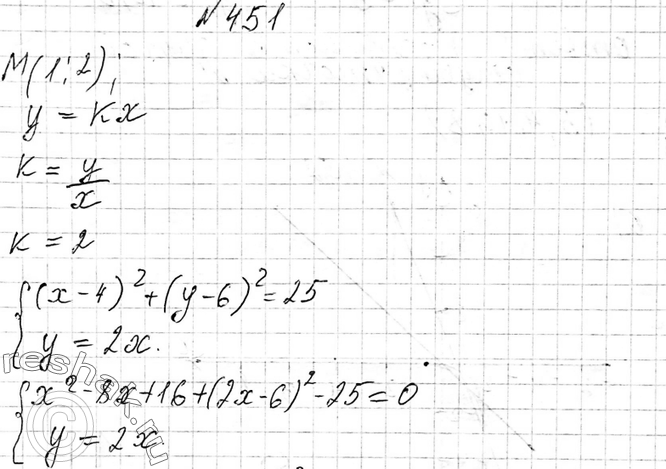 №451
M(1; 2);
y = kx
k = y/x
k = 2
{(x-4)²+(y-6)²=25
{y = 2x.
{x²-8x+16+(2x-6)²-25=0
{y = 2x
reshak.ru